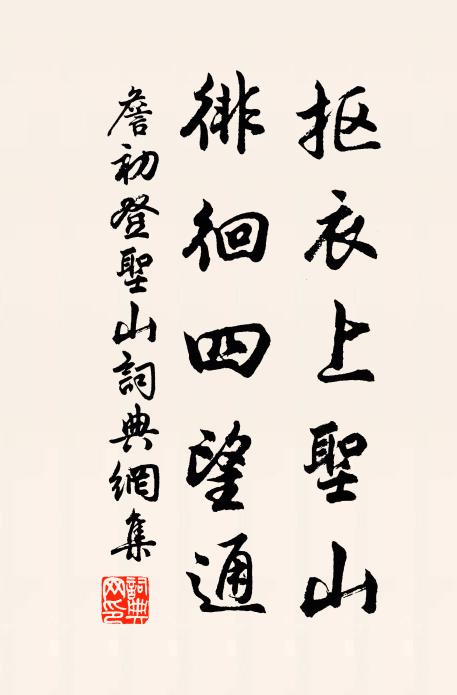 抠衣上聖山
徘徊四望通
詹初登聖山詞典網集
詞典网印